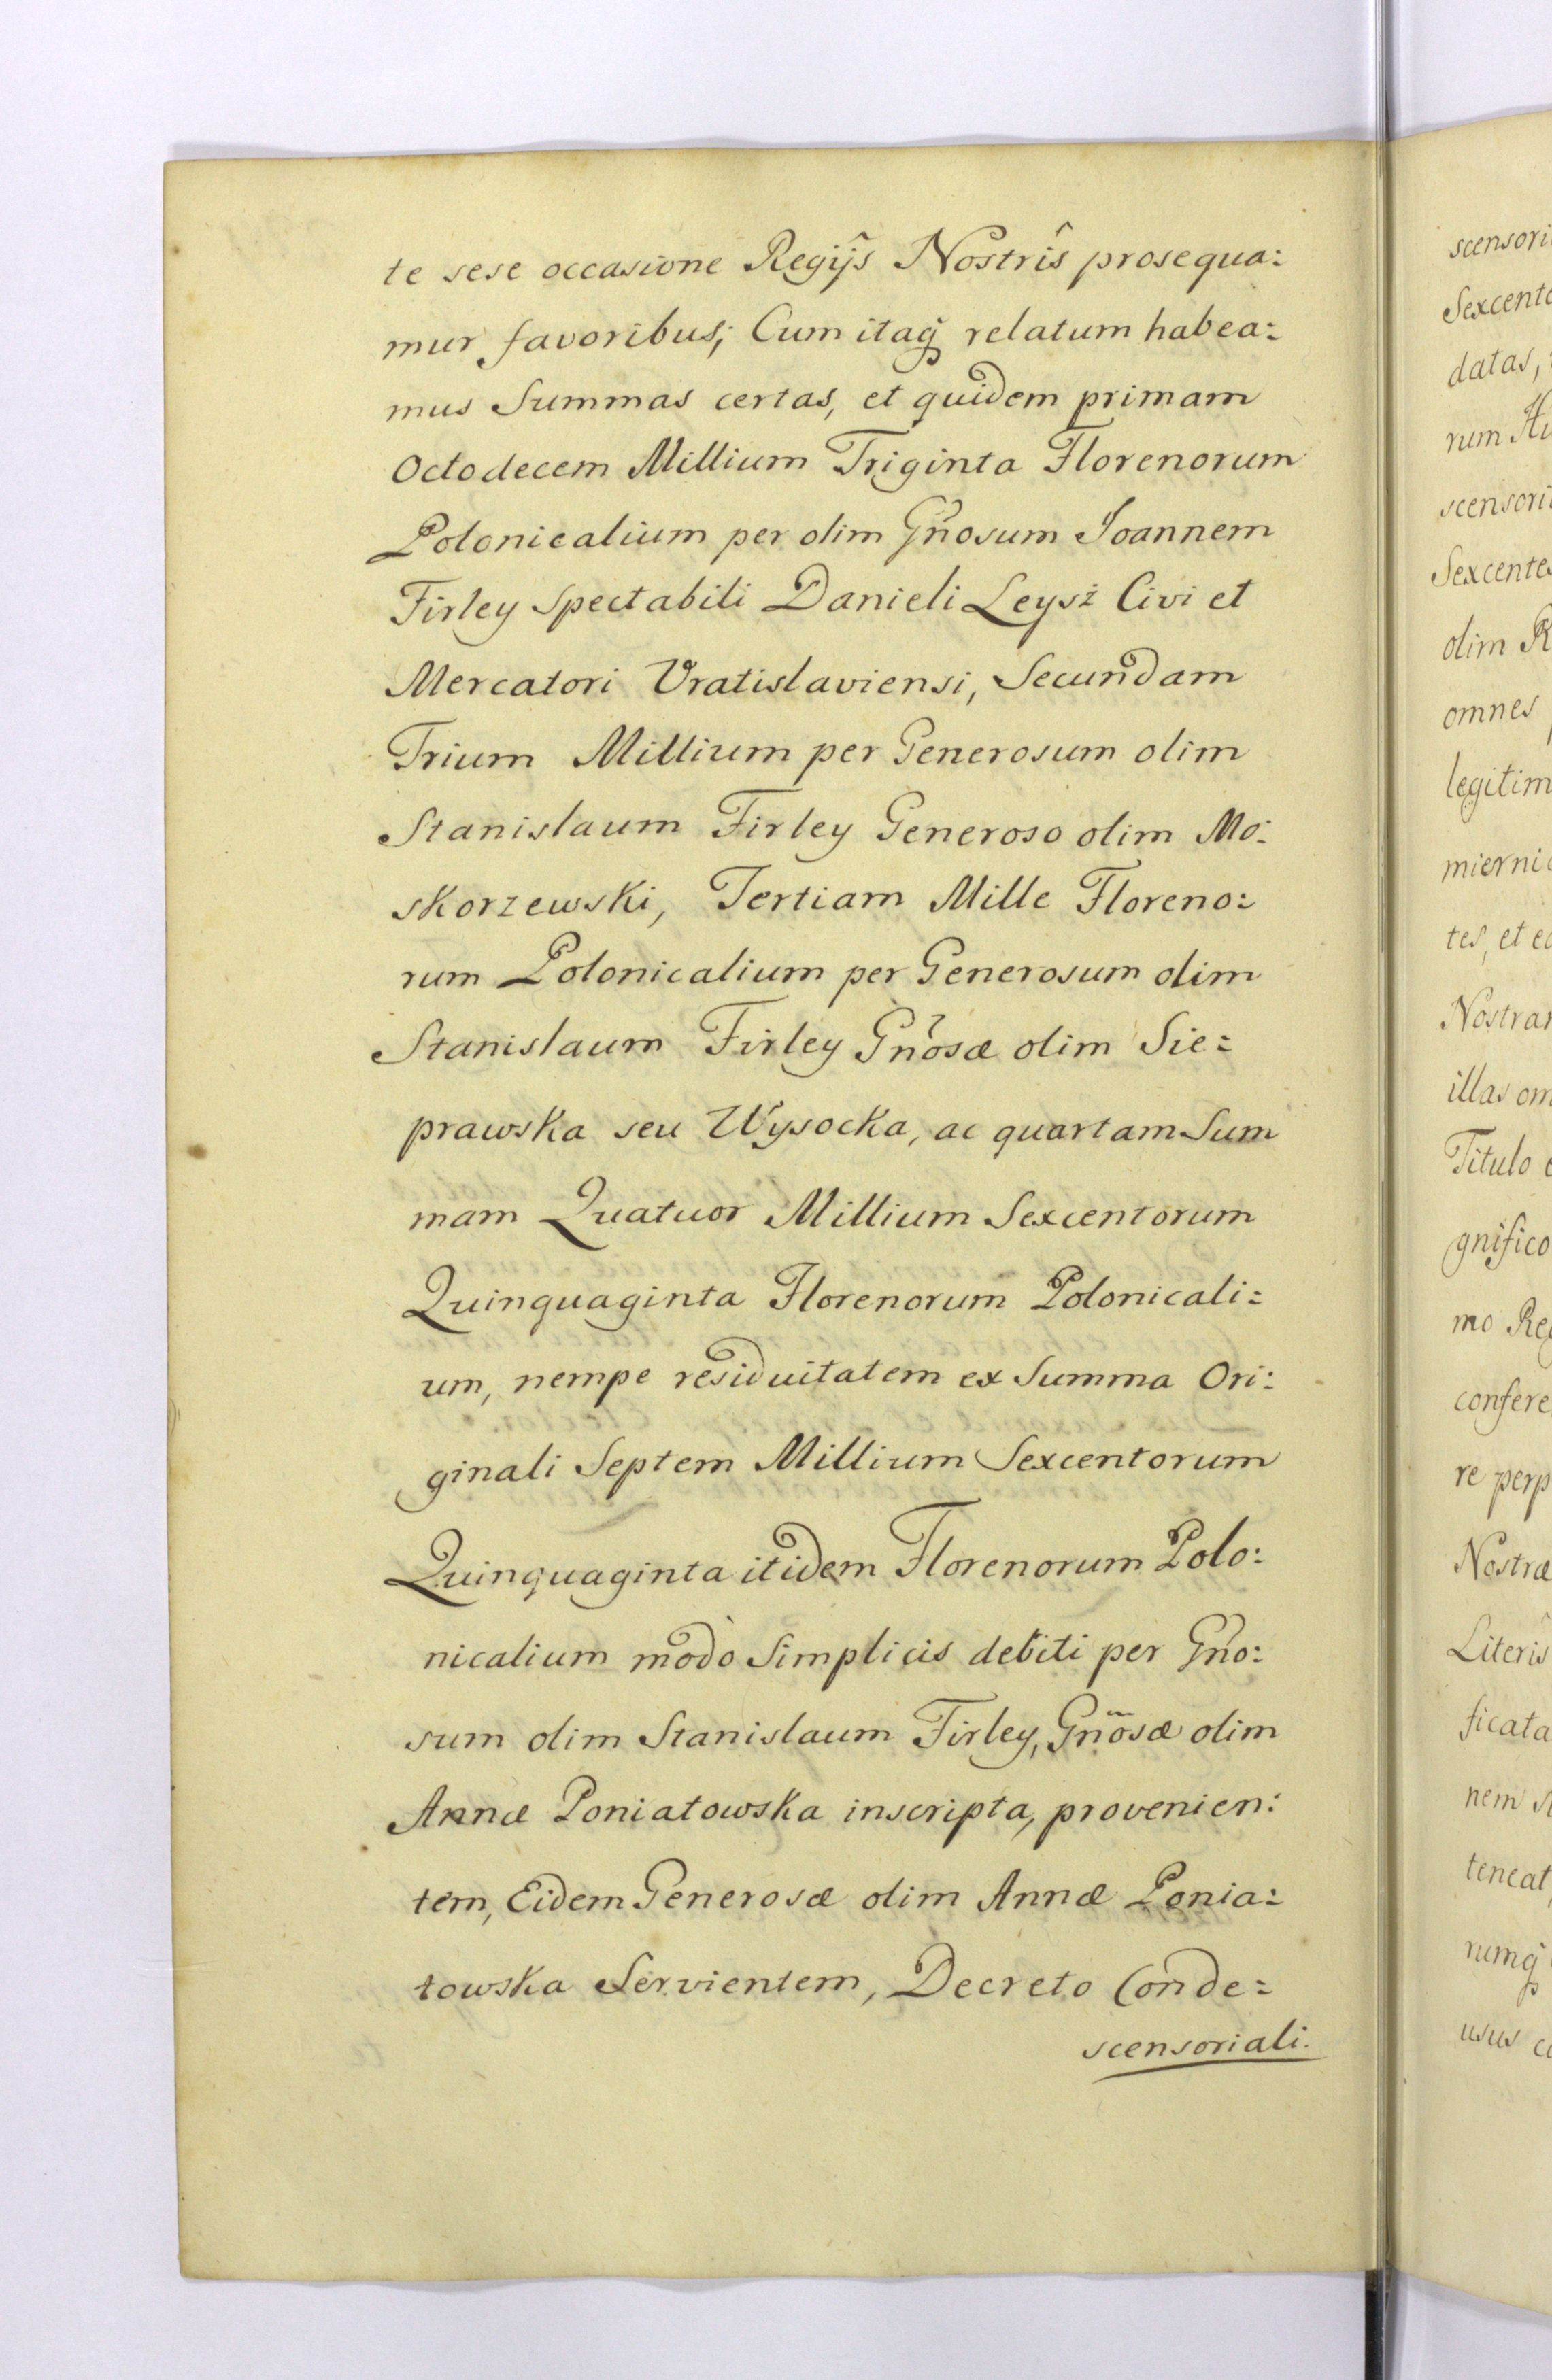 te sese occasione Regijs Nostrîs prosequa:
mur favoribus; Cum itaq̃ relatum habea:
mus Summas certas, et quidem primam
Octodecem Millium Triginta Florenorum
Polonicalium per olim Gñosum Joannem
Firley Spectabili Danieli Leysz Civi et
Mercatori Vratislaviensi, Secundam
Trium Millium per Generosum olim
Stanislaum Firley Generoso olim Mo:
skorzewski, Tertiam Mille Floreno:
rum Polonicalium per Generosum olim
Stanislaum Firley Gñosæ olim Sie:
prawska seu Wysocka, ac quartam Sum
mam Quatuor Millium Sexcentorum
Quinquaginta Florenorum Polonicali:
um, nempe residuitatem ex Summa Ori:
ginali Septem Millium Sexcentorum
Quinquaginta itidem Florenorum Polo:
nicalium modò Simplicis debiti per Gño:
sum olim Stanislaum Firley, Gñosæ olim
Annæ Poniatowska inscripta, provenien:
tem, Eidem Generosæ olim Annæ Ponia:
towska Servientem, Decreto Conde:
scensoriali.
scensori
Sexcento
datas,
rum
scensori
Sexcente
olim
omnes
legitim
miernic
tes, et
Nostra
illas om
Titulo
gnifico
mo Reg
confere
re perp
Nostræ
Literîs
ficata
nem
teneat
rumq̃
usus